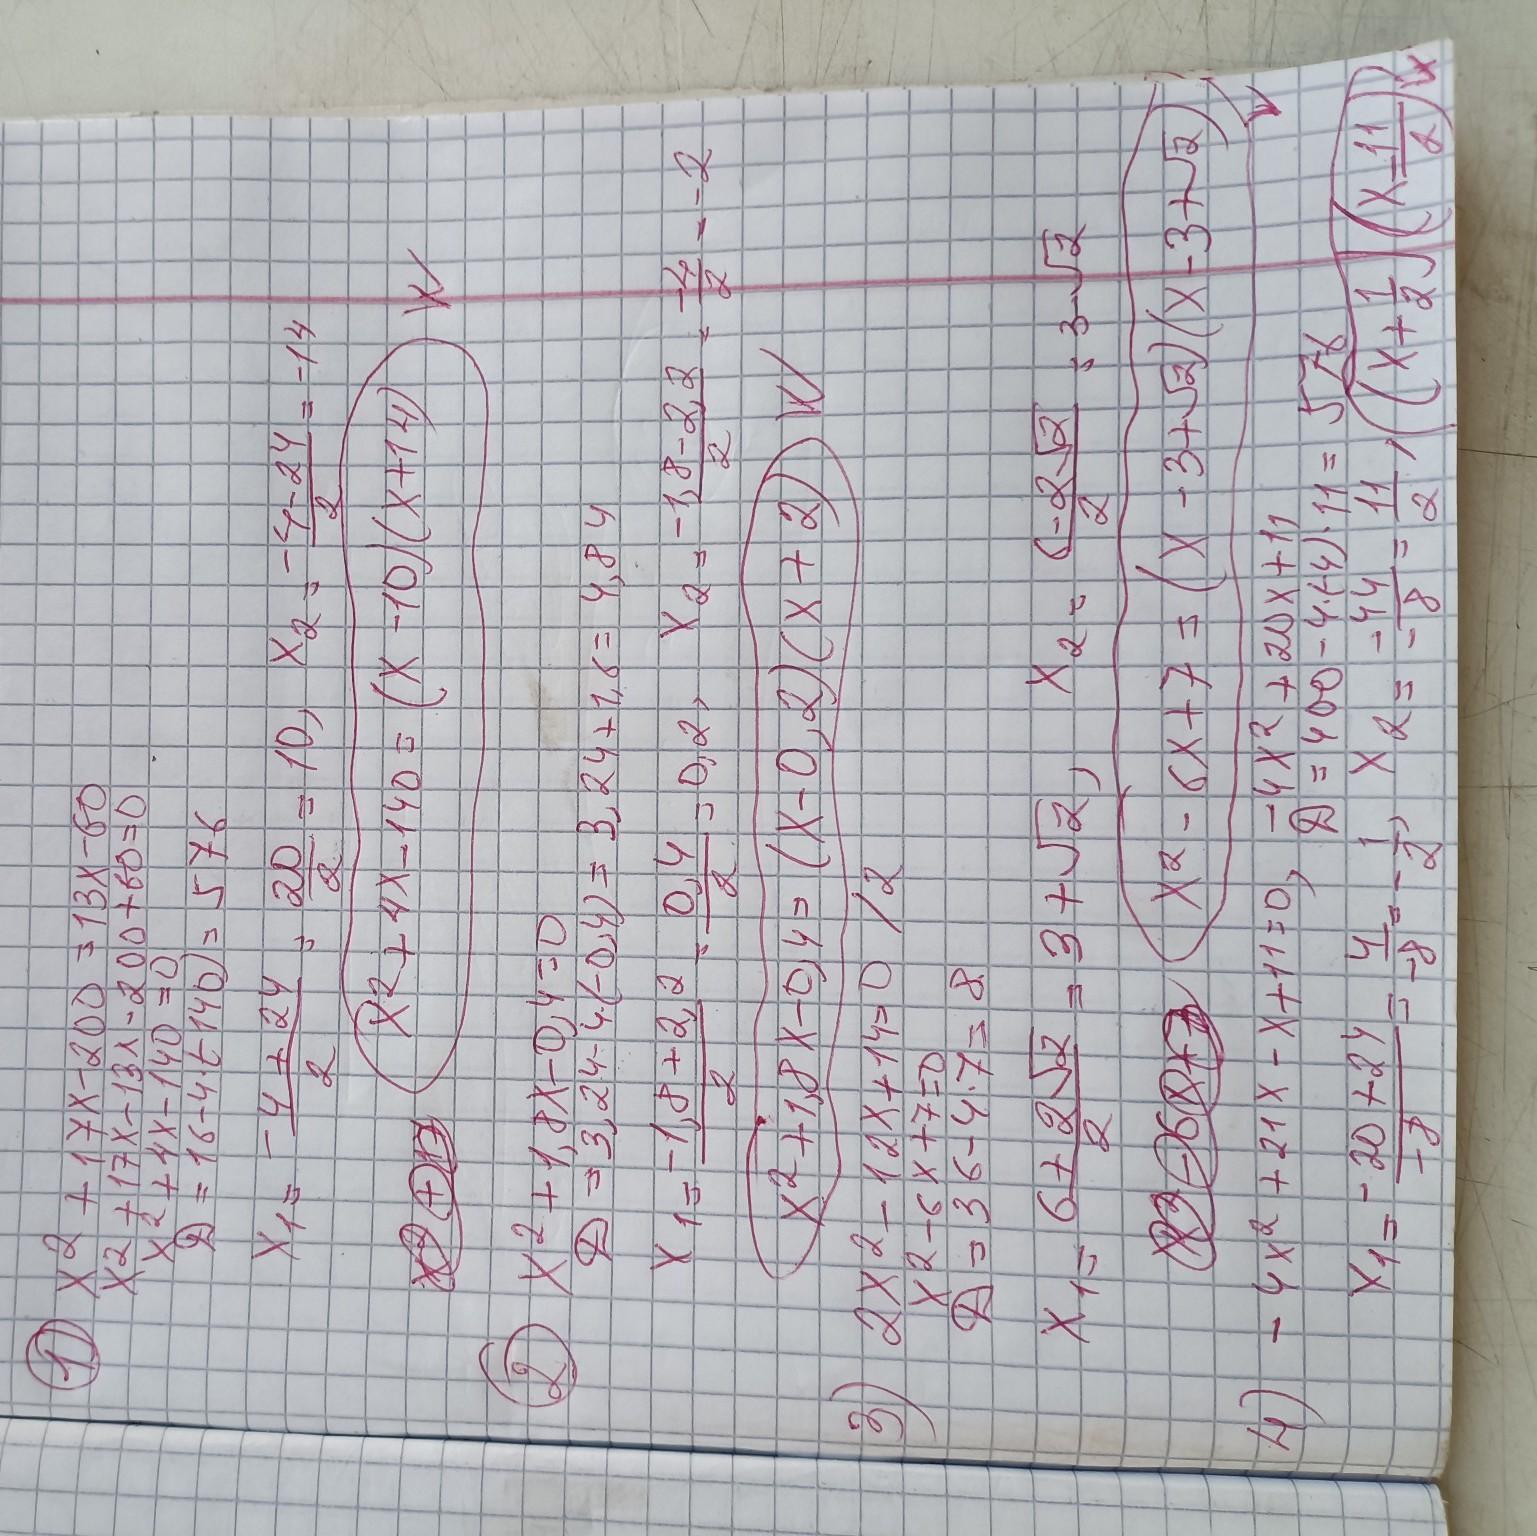 1) x² + 17x - 200 = 13x - 60
x² + 17x - 13x - 200 + 60 = 0
x² + 4x - 140 = 0
D = 16 - 4(-140) = 576
x₁ = (-4 + 24)/2 = 20/2 = 10, x₂ = (-4 - 24)/2 = -14
x² + 4x - 140 = (x - 10)(x + 14)
2) x² + 1,8x - 0,4 = 0
D = 3,24 - 4·(-0,4) = 3,24 + 1,6 = 4,84
x₁ = (-1,8 + 2,2)/2 = 0,4/2 = 0,2, x₂ = (-1,8 - 2,2)/2 = -4/2 = -2
x² + 1,8x - 0,4 = (x - 0,2)(x + 2)
3) 2x² - 12x + 14 = 0 /2
x² - 6x + 7 = 0
D = 36 - 4·7 = 8
x₁ = (6 + 2√2)/2 = 3 + √2, x₂ = (-2-√2)/2 = 3-√2
x² - 6x + 7 = (x - 3 + √2)(x - 3 + √2)
4) -4x² + 21x - x + 11 = 0, -4x² + 20x + 11
D = 400 - 4·(-4)·11 = 576
x₁ = (-20 + 24)/-8 = 4/-8 = -1/2, x₂ = -44/-8 = 11/2, (x + 1/2)(x - 11/2)